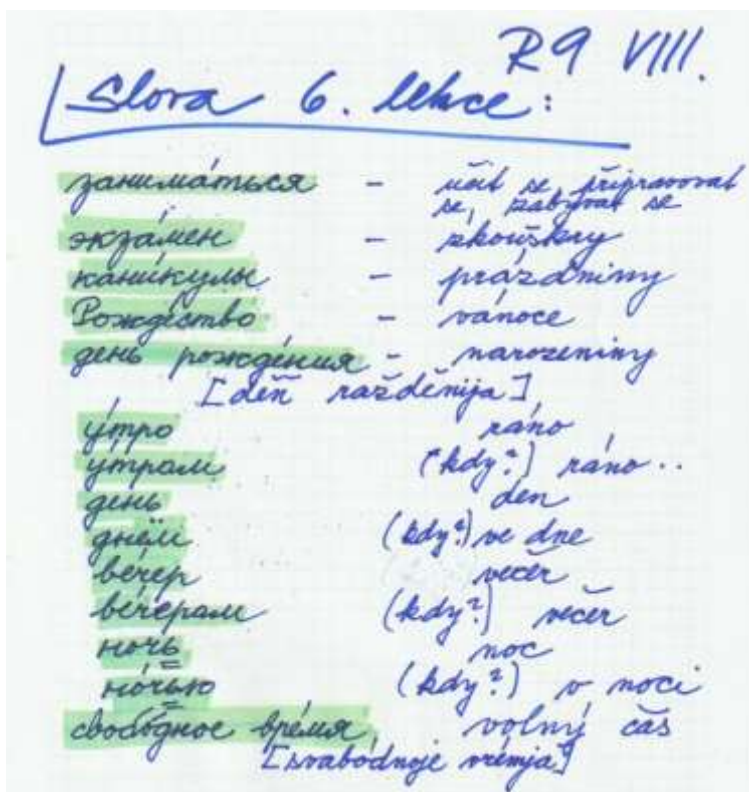 R9 VIII.
Slova 6. lekce:
занима́ться - učit se, připravovat
se, zabývat se
экза́мен - zkoušky
кани́кулы - prázdniny
Рождество́ - vánoce
день рожде́ния - narozeniny
[děň ražděnija]
у́тро ráno
у́тром (kdy?) ráno..
день den
днём (kdy?) ve dne
ве́чер večer
ве́чером (kdy?) večer
ночь noc
но́чью (kdy?) v noci
свобо́дное вре́мя, volný čas
[svabódnoje vrémja]